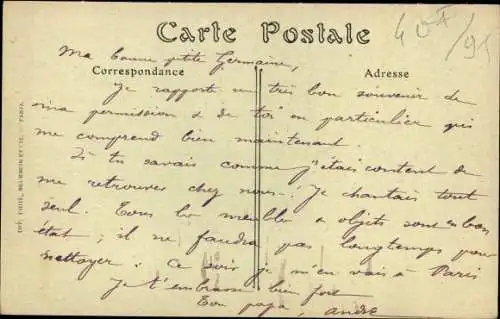 Carte Postale
Ma bonne petite Germaine,
Correspondance
Adresse
Je rapporte un très bon souvenir de
ma permission & de toi en particulier qui
me comprend bien maintenant.
Si tu savais comme j'étais content de
me retrouver chez nous! Je chantais tout
seul. Tous les meubles & objets sont en bon
état; il ne faudra pas longtemps pour
nettoyer. Ce soir je m'en vais à Paris
Je t'embrasse bien fort
Ton papa, André